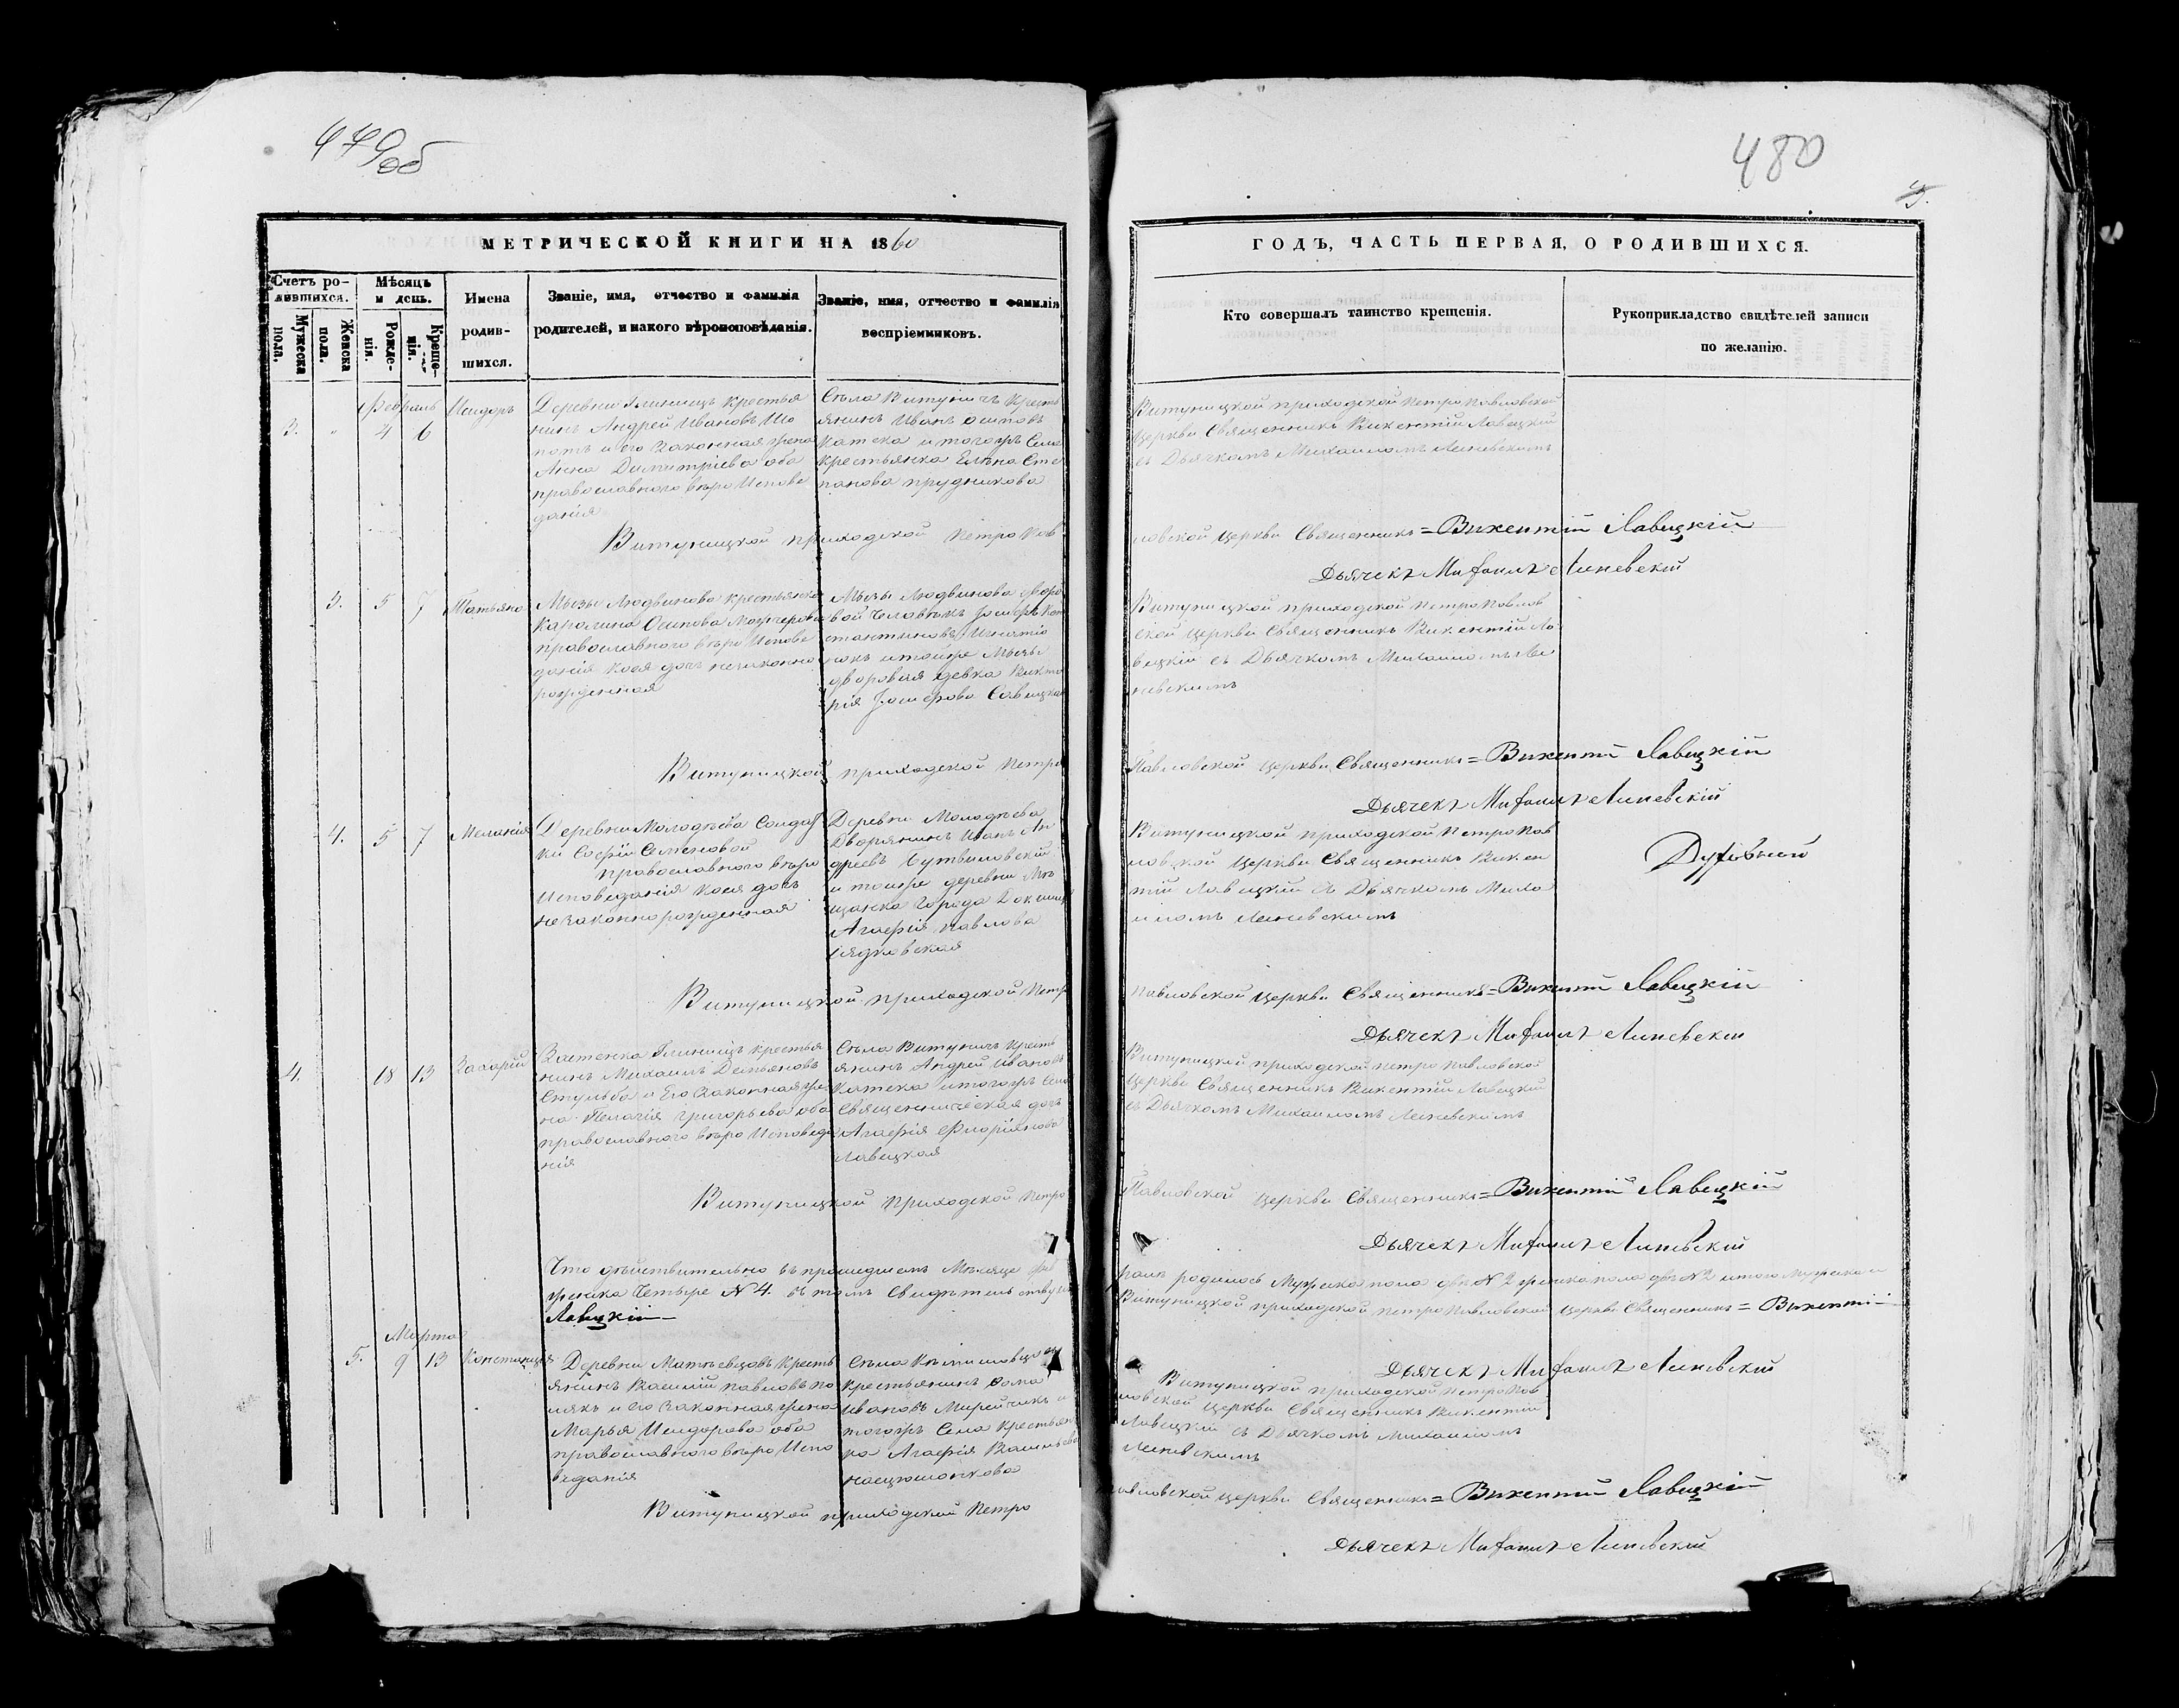 479об
480
МЕТРИЧЕСКОЙ КНИГИ НА 1860
ГОДЪ, ЧАСТЬ ПЕРВАЯ, О РОДИВШИХСЯ.
Счетъ ро-
дившихся.
Мужеска
пола.
Женска
пола.
Мѣсяцъ
и день.
Рожде-
нія.
Креще-
нія.
Имена
родив-
шихся.
Званіе, имя, отчество и фамилія
родителей, и какого вѣроисповѣданія.
Званіе, имя, отчество и фамилія
воспріемниковъ.
Кто совершалъ таинство крещенія.
Рукоприкладство свидѣтелей записи
по желанію.
3.
Февраль
4 6
Исидоръ
Деревни Глинищъ крестья
нинъ Андрей Ивановъ
и его законная жена
Анна Димитріева оба
православного вѣро Испове
данія
Села Витуничъ кресть
янинъ Иванъ Осиповъ
Катека и тогожъ Села
крестьянка Елена Сте
панова прудникова
Витуницкой приходской Петро Павловской
Церкви Священникъ Викентій Лавицкій
съ Дьячкомъ Михаиломъ Линевскимъ
Витуницкой приходской Петро Пав
ловской Церкви Священникъ = Викентій Лавицкій
Дьячекъ Михаилъ Линевскій
3.
5 7
Татьяна
Мызы Людвинова крестьянка
Каролина Осипова
православного вѣро Испове
данія коея дочь незаконно
рожденная
Мызы Людвинова дворо
вой Человѣкъ Іосифъ Кон
стантиновъ Игнатіо
нокъ и тойже Мызы
дворовая девка Викто
рія Іосифова Савицкая
Витуницкой приходской Петро Павлов
ской Церкви Священникъ Викентій Ла
вицкій съ Дьячкомъ Михаиломъ Ли
невскимъ
Витуницкой приходской Петро
Павловской Церкви Священникъ = Викентій Лавицкій
Дьячекъ Михаилъ Линевскій
4.
5 7
Меланія
Деревни Молодѣева Солдат
ки Софіи Семеновой
православного вѣро
Исповеданія коея дочь
незаконнорожденная
Деревни Молодѣева
Дворянинъ Иванъ Ан
дреевъ
и тойже деревни Мѣ
щанка Города Докшиц
Агафія Павлова
Витуницкой приходской Петро Пав
ловской Церкви Священникъ Викен
тій Лавицкій съ Дьячкомъ Миха
иломъ Линевскимъ
Витуницкой приходской Петр
Павловской Церкви Священникъ = Викентій Лавицкій
Дьячекъ Михаилъ Линевскій
4.
18 13
Захарій
Застенка Глинищъ крестья
нинъ Михаилъ Демьяновъ
Стульба и Его Законная же
на Пелагія Григорьева оба
православного вѣро Исповеда
нія
Села Витуничъ Кресть
янинъ Андрей Ивановъ
Катека и тогожъ Села
Священническая дочь
Агафія Флоріянова
Лавицкая
Витуницкой приходской Петро Павловской
Церкви Священникъ Викентій Лавицкій
съ Дьячкомъ Михаиломъ Линевскимъ
Витуницкой приходской Петро
Павловской Церкви Священникъ = Викентій Лавицкій
Дьячекъ Михаилъ Линевскій
Что дѣйствительно въ прошедшемъ Месяце
родилось Мужеска пола два N 2 женска пола две N 2 итого Мужеска и
женска Четыре N 4. въ томъ Свидѣтельствую
Витуницкой приходской Петро Павловской Церкви Священникъ = Викентій
Лавицкій
Дьячекъ Михаилъ Линевскій
5.
Марта
9 13
Констанція
Деревни Матвевцовъ Кресть
янинъ Василій Павловъ По
лякъ и его Законная жена
Марья Исидорова оба
православного вѣро Испо
веданія
Села
крестьянинъ Фома
Ивановъ Мирейчикъ и
тогожъ Села Крестьян
ка Агафія Васильева
Витуницкой приходской Петро Пав
ловской Церкви Священникъ Викентій
Лавицкій съ Дьячкомъ Михаиломъ
Линевскимъ
Витуницкой приходской Петро
Павловской Церкви Священникъ = Викентій Лавицкій
Дьячекъ Михаилъ Линевскій